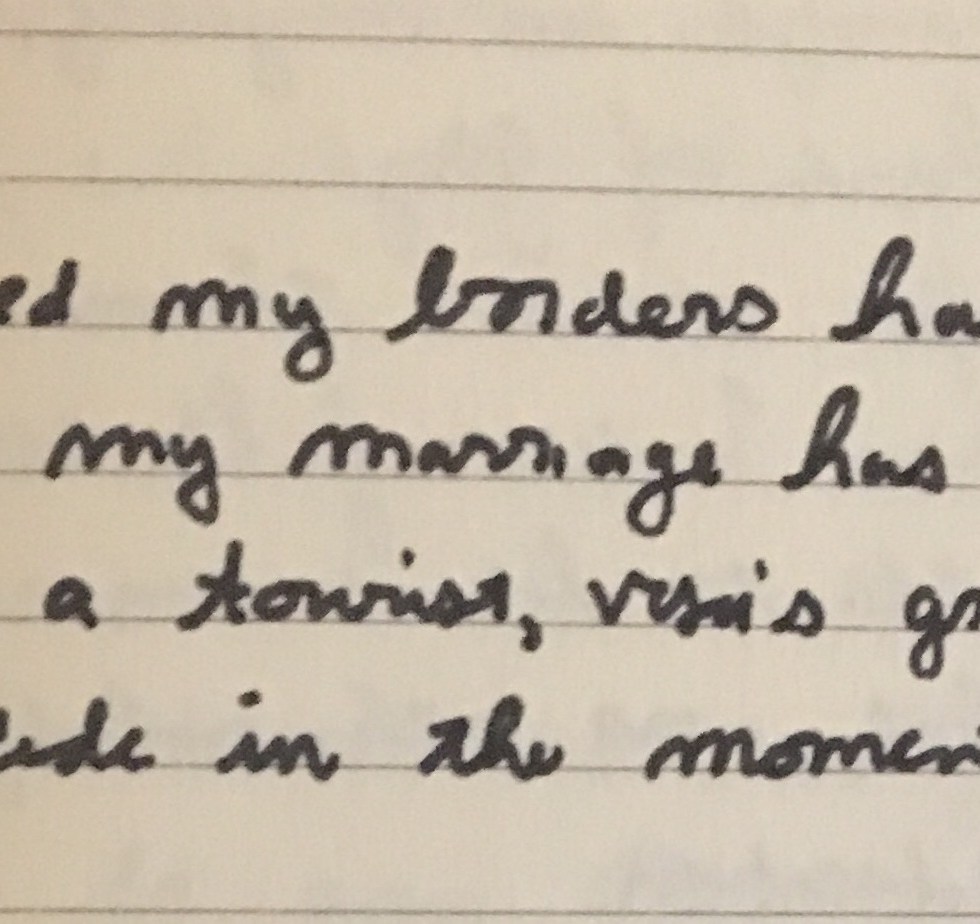 ed my borders ha
my marriage has
a tourist, visa's gr
cide in the momen